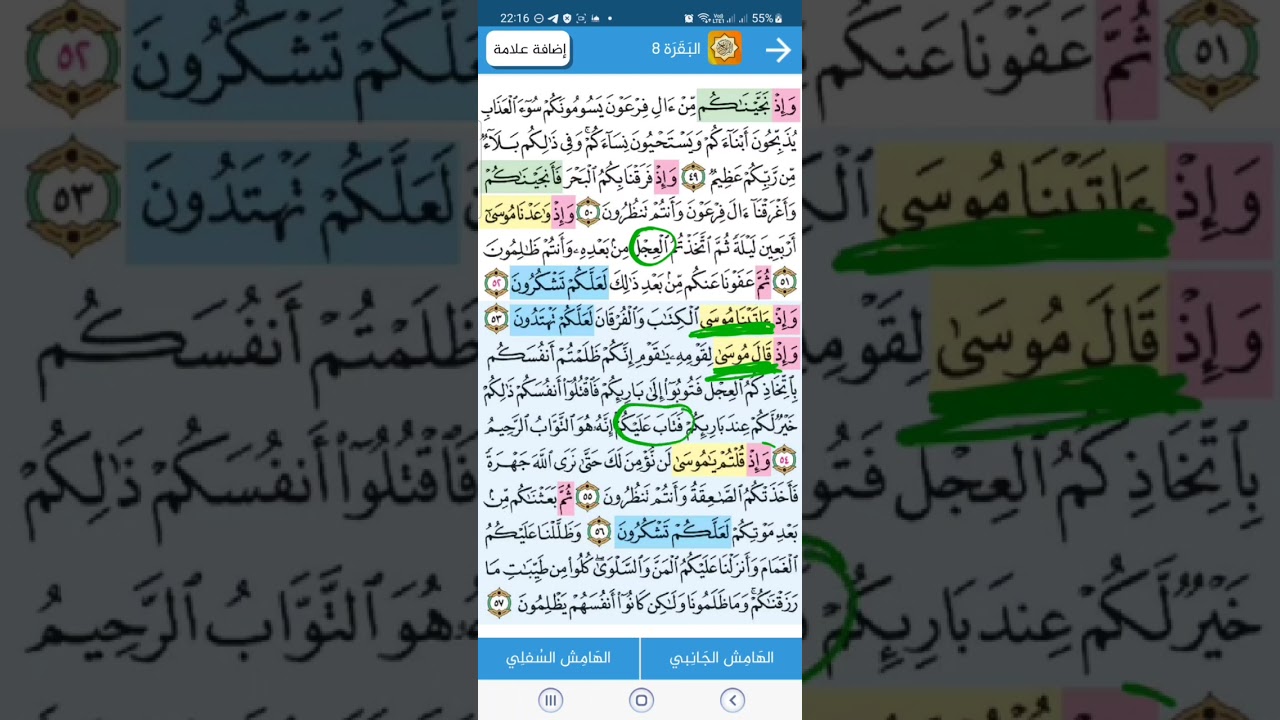 22:16
55%
البَقَرَة 8
إضافة علامة
وَإِذْ نَجَّيْنَـٰكُم مِّنْ ءَالِ فِرْعَوْنَ يَسُومُونَكُمْ سُوٓءَ ٱلْعَذَابِ
يُذَبِّحُونَ أَبْنَآءَكُمْ وَيَسْتَحْيُونَ نِسَآءَكُمْ ۚ وَفِى ذَٰلِكُم بَلَآءٌ
مِّن رَّبِّكُمْ عَظِيمٌ ٤٩ وَإِذْ فَرَقْنَا بِكُمُ ٱلْبَحْرَ فَأَنجَيْنَـٰكُمْ
وَأَغْرَقْنَآ ءَالَ فِرْعَوْنَ وَأَنتُمْ تَنظُرُونَ ٥٠ وَإِذْ وَٰعَدْنَا مُوسَىٰٓ
أَرْبَعِينَ لَيْلَةً ثُمَّ ٱتَّخَذْتُمُ ٱلْعِجْلَ مِنۢ بَعْدِهِۦ وَأَنتُمْ ظَـٰلِمُونَ
٥١ ثُمَّ عَفَوْنَا عَنكُم مِّنۢ بَعْدِ ذَٰلِكَ لَعَلَّكُمْ تَشْكُرُونَ ٥٢
وَإِذْ ءَاتَيْنَا مُوسَى ٱلْكِتَـٰبَ وَٱلْفُرْقَانَ لَعَلَّكُمْ تَهْتَدُونَ ٥٣
وَإِذْ قَالَ مُوسَىٰ لِقَوْمِهِۦ يَـٰقَوْمِ إِنَّكُمْ ظَلَمْتُمْ أَنفُسَكُم
بِٱتِّخَاذِكُمُ ٱلْعِجْلَ فَتُوبُوٓا۟ إِلَىٰ بَارِئِكُمْ فَٱقْتُلُوٓا۟ أَنفُسَكُمْ ذَٰلِكُمْ
خَيْرٌ لَّكُمْ عِندَ بَارِئِكُمْ فَتَابَ عَلَيْكُمْ ۚ إِنَّهُۥ هُوَ ٱلتَّوَّابُ ٱلرَّحِيمُ
٥٤ وَإِذْ قُلْتُمْ يَـٰمُوسَىٰ لَن نُّؤْمِنَ لَكَ حَتَّىٰ نَرَى ٱللَّهَ جَهْرَةً
فَأَخَذَتْكُمُ ٱلصَّـٰعِقَةُ وَأَنتُمْ تَنظُرُونَ ٥٥ ثُمَّ بَعَثْنَـٰكُم مِّنۢ
بَعْدِ مَوْتِكُمْ لَعَلَّكُمْ تَشْكُرُونَ ٥٦ وَظَلَّلْنَا عَلَيْكُمُ
ٱلْغَمَامَ وَأَنزَلْنَا عَلَيْكُمُ ٱلْمَنَّ وَٱلسَّلْوَىٰ ۖ كُلُوا۟ مِن طَيِّبَـٰتِ مَا
رَزَقْنَـٰكُمْ ۖ وَمَا ظَلَمُونَا وَلَـٰكِن كَانُوٓا۟ أَنفُسَهُمْ يَظْلِمُونَ ٥٧
الهَامِش الجَانِبي
الهَامِش السُفلِي